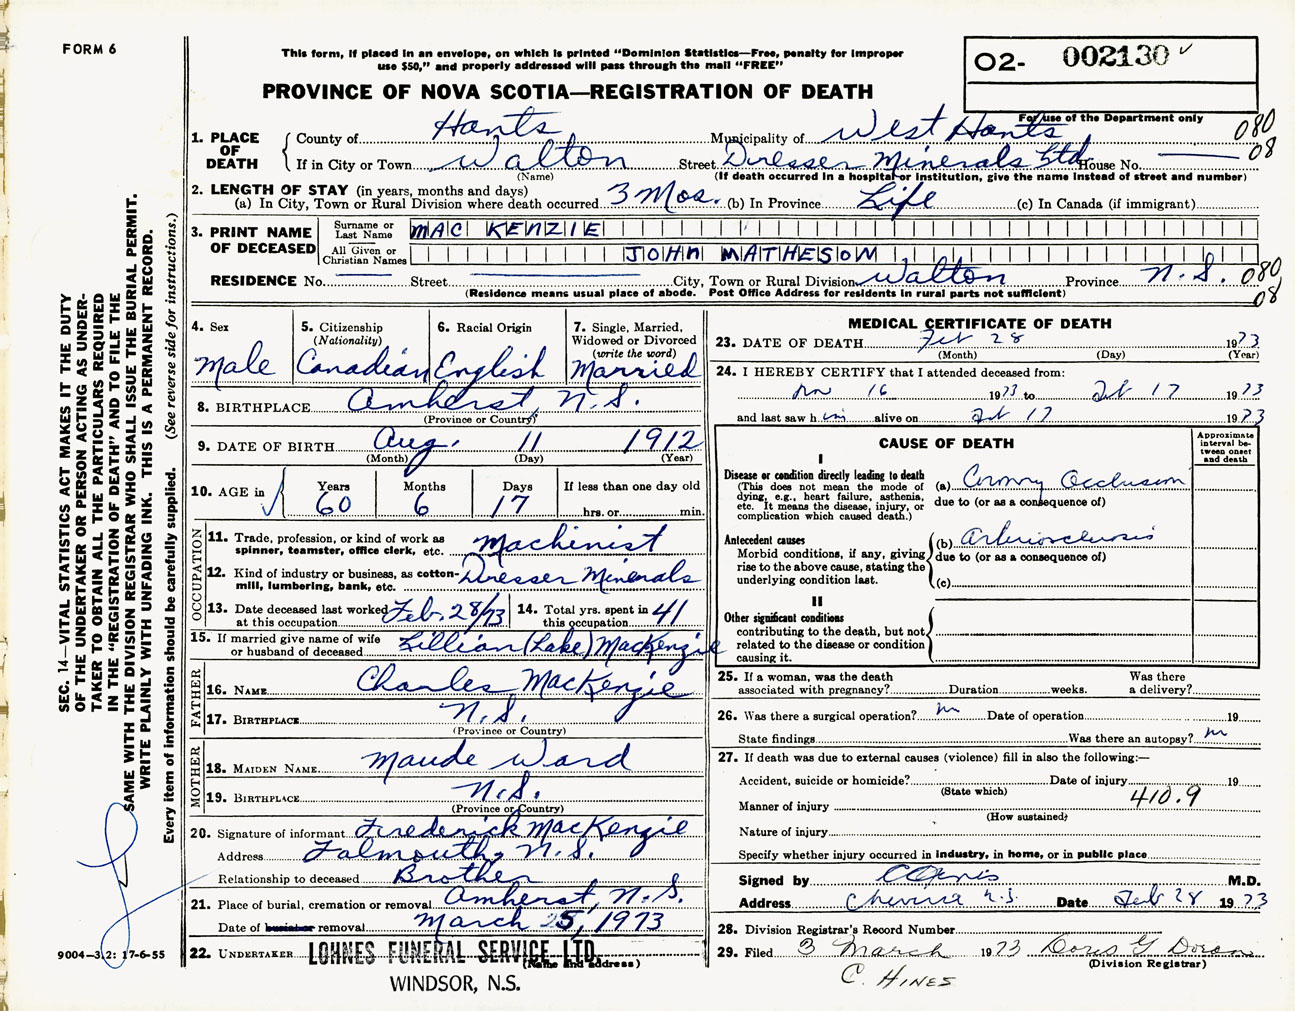 FORM 6
This form, if placed in an envelope, on which is printed "Dominion Statistics—Free, penalty for improper
use $50," and properly addressed will pass through the mail "FREE"
O2- 002130
PROVINCE OF NOVA SCOTIA—REGISTRATION OF DEATH
For use of the Department only
080
08
1. PLACE OF DEATH
County of Hants Municipality of West Hants
If in City or Town Walton Street Dresser Minerals Ltd House No.
(Name) (If death occurred in a hospital or institution, give the name instead of street and number)
2. LENGTH OF STAY (in years, months and days)
(a) In City, Town or Rural Division where death occurred 3 Mos. (b) In Province Life (c) In Canada (if immigrant)
3. PRINT NAME OF DECEASED
Surname or Last Name MAC KENZIE
All Given or Christian Names JOHN MATHESON
RESIDENCE No. Street City, Town or Rural Division Walton Province N.S. 080
08
(Residence means usual place of abode. Post Office Address for residents in rural parts not sufficient)
4. Sex
Male
5. Citizenship
(Nationality)
Canadian
6. Racial Origin
English
7. Single, Married,
Widowed or Divorced
(write the word)
Married
8. BIRTHPLACE Amherst, N.S.
(Province or Country)
9. DATE OF BIRTH Aug. 11 1912
(Month) (Day) (Year)
10. AGE in
Years Months Days If less than one day old
60 6 17 hrs. or min.
OCCUPATION
11. Trade, profession, or kind of work as
spinner, teamster, office clerk, etc. Machinist
12. Kind of industry or business, as cotton-
mill, lumbering, bank, etc. Dresser Minerals
13. Date deceased last worked
at this occupation Feb. 28/73
14. Total yrs. spent in
this occupation 41
15. If married give name of wife
or husband of deceased Lillian (Lake) MacKenzie
FATHER
16. NAME Charles MacKenzie
17. BIRTHPLACE N.S.
(Province or Country)
MOTHER
18. MAIDEN NAME Maude Ward
19. BIRTHPLACE N.S.
(Province or Country)
20. Signature of informant Frederick MacKenzie
Address Falmouth, N.S.
Relationship to deceased Brother
21. Place of burial, cremation or removal Amherst, N.S.
Date of burial or removal March 5, 1973
22. UNDERTAKER LOHNES FUNERAL SERVICE LTD.
(Name and address)
WINDSOR, N.S.
MEDICAL CERTIFICATE OF DEATH
23. DATE OF DEATH Feb 28 1973
(Month) (Day) (Year)
24. I HEREBY CERTIFY that I attended deceased from:
16 1973 to Feb 17 1973
and last saw him alive on Feb 17 1973
CAUSE OF DEATH
Approximate
interval be-
tween onset
and death
I
Disease or condition directly leading to death
(This does not mean the mode of
dying, e.g., heart failure, asthenia,
etc. It means the disease, injury, or
complication which caused death.)
(a) Coronary Occlusion
due to (or as a consequence of)
Antecedent causes
Morbid conditions, if any, giving
rise to the above cause, stating the
underlying condition last.
(b) Arteriosclerosis
due to (or as a consequence of)
(c)
II
Other significant conditions
contributing to the death, but not
related to the disease or condition
causing it.
25. If a woman, was the death
associated with pregnancy? Duration weeks. Was there
a delivery?
26. Was there a surgical operation? no Date of operation 19
State findings Was there an autopsy? no
27. If death was due to external causes (violence) fill in also the following:—
Accident, suicide or homicide? Date of injury 19
(State which)
410.9
Manner of injury
(How sustained)
Nature of injury
Specify whether injury occurred in industry, in home, or in public place
Signed by M.D.
Address N.S. Date Feb 28 1973
28. Division Registrar's Record Number
29. Filed 3 March 1973 Doris G
(Division Registrar)
C. HINES
SEC. 14—VITAL STATISTICS ACT MAKES IT THE DUTY
OF THE UNDERTAKER OR PERSON ACTING AS UNDER-
TAKER TO OBTAIN ALL THE PARTICULARS REQUIRED
IN THE "REGISTRATION OF DEATH" AND TO FILE THE
SAME WITH THE DIVISION REGISTRAR WHO SHALL ISSUE THE BURIAL PERMIT.
WRITE PLAINLY WITH UNFADING INK. THIS IS A PERMANENT RECORD.
Every item of information should be carefully supplied. (See reverse side for instructions.)
9004—3.2: 17-6-55